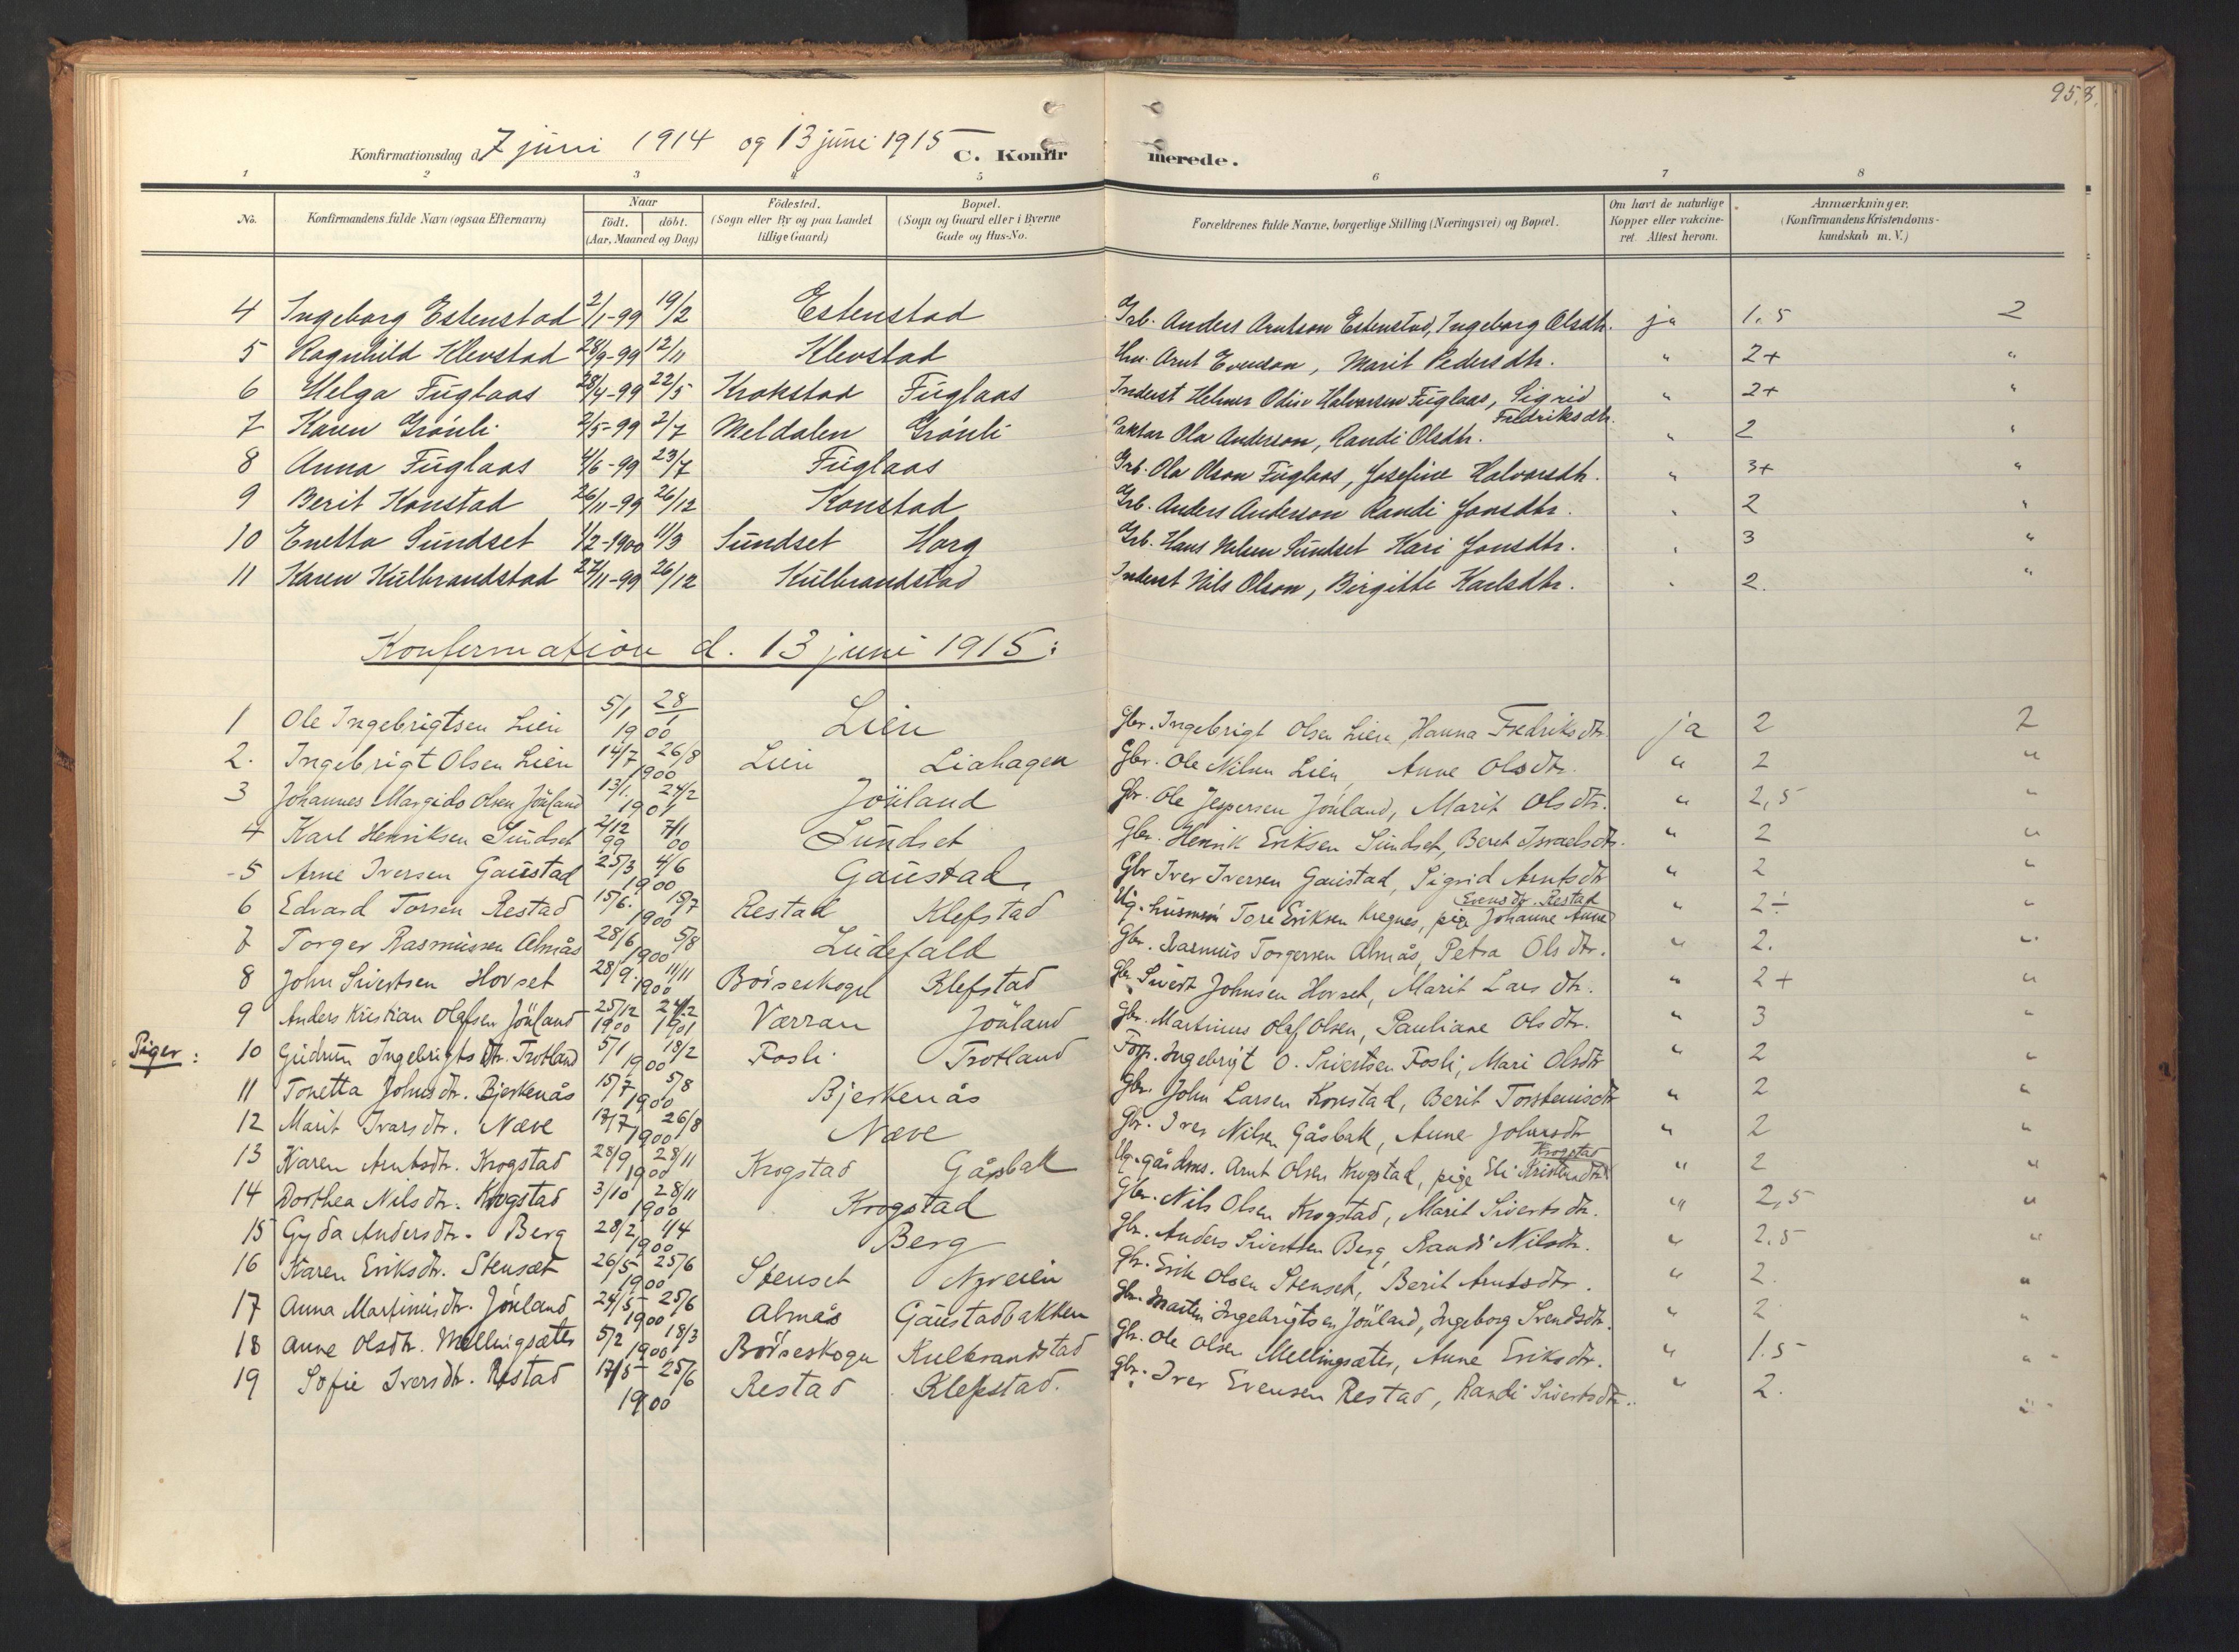 95,8.
Konfirmationsdag d. 7 juni 1914 og 13 juni 1915 C. Konfirmerede.
1 2 3 4 5 6 7 8
No. Konfirmandens fulde Navn (ogsaa Efternavn) Naar født. døbt. (Aar, Maaned og Dag) Fødested. (Sogn eller By og paa Landet tillige Gaard) Bopæl. (Sogn og Gaard eller i Byerne Gade og Hus-No. Forældrenes fulde Navne, borgerlige Stilling (Næringsvei) og Bopæl. Om havt de naturlige Kopper eller vakcineret. Attest herom. Anmærkninger. (Konfirmandens Kristendomskundskab m. V.)
4 Ingeborg Estenstad 2/1-99 19/2 Estenstad Grb. Anders Arntson Estenstad, Ingeborg Olsdtr. ja 1.5 2
5 Ragnhild Klevstad 28/9-99 12/11 Klevstad Hm. Arnt Evenson, Marit Pedersdtr. " 2+ "
6 Helga Fuglaas 28/4-99 22/5 Krokstad Fuglaas Inderst Helmer Odin Halvorsen Fuglaas, Sigrid Fredriksdtr. " 2+ "
7 Karen Grönli 2/5-99 2/7 Meldalen Grönli Ola Anderson, Randi Olsdtr. " 2 "
8 Anna Fuglaas 4/6-99 23/7 Fuglaas Grb. Ola Olson Fuglaas, Josefine Halvorsdtr. " 3+ "
9 Berit Konstad 26/11-99 26/12 Konstad Grb. Anders Anderson Randi Jonsdtr. " 2 "
10 Enetta Sundset 1/2-1900 11/3 Sundset Horg Grb. Hans Sundset Kari Jonsdtr. " 3 "
11 Karen Kulbrandstad 27/11-99 26/12 Kulbrandstad Inderst Nils Olson, Birgitte Karlsdtr. " 2. "
Konfermation d. 13 juni 1915:
1 Ole Ingebrigtsen Lien 5/1 28/1 1900 Lien Gbr. Ingebrigt Olsen Lien, Hanna Fredriksdtr ja 2 2
2. Ingebrigt Olsen Lien 14/7 26/8 1900 Lien Liahagen Gbr. Ole Nilsen Lien, Anne Olsdtr. " 2 "
3 Johannes Margido Olsen Jöuland 13/1. 24/2 1901 Jöuland Gbr. Ole Jespersen Jöuland, Marit Olsdtr. " 2,5 "
4 Karl Henriksen Sundset 2/12 99 7/1 00 Sundset Gbr. Henrik Eriksen Sundset, Beret Israelsdtr. " 2 "
5 Arne Iversen Gaustad 25/3 4/6 1900 Gaustad Gbr Iver Iversen Gaustad, Sigrid Arntsdtr " 2 "
6 Edvard Torsen Restad 15/6. 15/7 1900 Restad Klefstad Ug. husmsön Tore Eriksen Kregnes, pige Johanne Anne Evensdtr. Restad " 2÷ "
7 Torger Rasmussen Almås 28/6 5/8 1900 Ludefald Gbr. Rasmus Torgersen Almås, Petra Olsdtr. " 2. "
8 John Sivertsen Hovset 28/9. 11/11 1900 Börseskogn Klefstad Gbr. Sivert Johnsen Hovset, Marit Larsdtr. " 2+ "
9 Anders Kristian Olafsen Jöuland 25/12 1900 24/2 1901 Værran Jöuland Gbr. Martinus Olaf Olsen, Pauliane Olsdtr. " 3 "
Piger: 10 Gudrun Ingebrigtsdtr. Trotland 5/1 18/2 1900 Fosli Trotland Forp. Ingebrigt O. Sivertsen Fosli, Mari Olsdtr " 2 "
11 Tonetta Johnsdtr. Bjerkenås 15/7 5/8 1900 Bjerkenås Gbr. John Larsen Konstad, Berit Torstensdtr " 2 "
12 Marit Ivarsdtr. Næve 17/7 26/8 1900 Næve Gbr. Iver Nilsen Gåsbak, Anne Johnsdtr " 2 "
13 Karen Arntsdtr. Krogstad 28/9 28/11 1900 Krogstad Gåsbak Ug. gårdms. Arnt Olsen Krogstad, pige Eli Kristendtr Krogstad " 2 "
14 Dorthea Nilsdtr. Krogstad 3/10 28/11 1900 Krogstad Gbr. Nils Olsen Krogstad, Marit Sivertsdtr. " 2,5 "
15 Gyda Andersdtr. Berg 28/2 1/4 1900 Berg Gbr. Anders Sivertsen Berg, Randi Nilsdtr. " 2.5 "
16 Karen Eriksdtr. Stensæt 26/5 25/6 1900 Stenset Nyveien Gbr. Erik Olsen Stenset, Berit Arntsdtr. " 2. "
17 Anna Martinusdtr. Jöuland 24/5 25/6 1900 Almås Gaustadbakken Gbr. Martin Ingebrigtsen Jöuland, Ingeborg Svendsdtr. " 2 "
18 Anne Olsdtr. Mellingsæter 5/2 18/3 1900 Börseskogn Kulbrandstad Gbr. Ole Olsen Mellingsæter, Anne Eriksdtr. " 1.5 "
19 Sofie Iversdtr. Restad 17/5 25/6 1900 Restad Klefstad. Gbr. Iver Evensen Restad, Randi Sivertsdtr. " 2. "